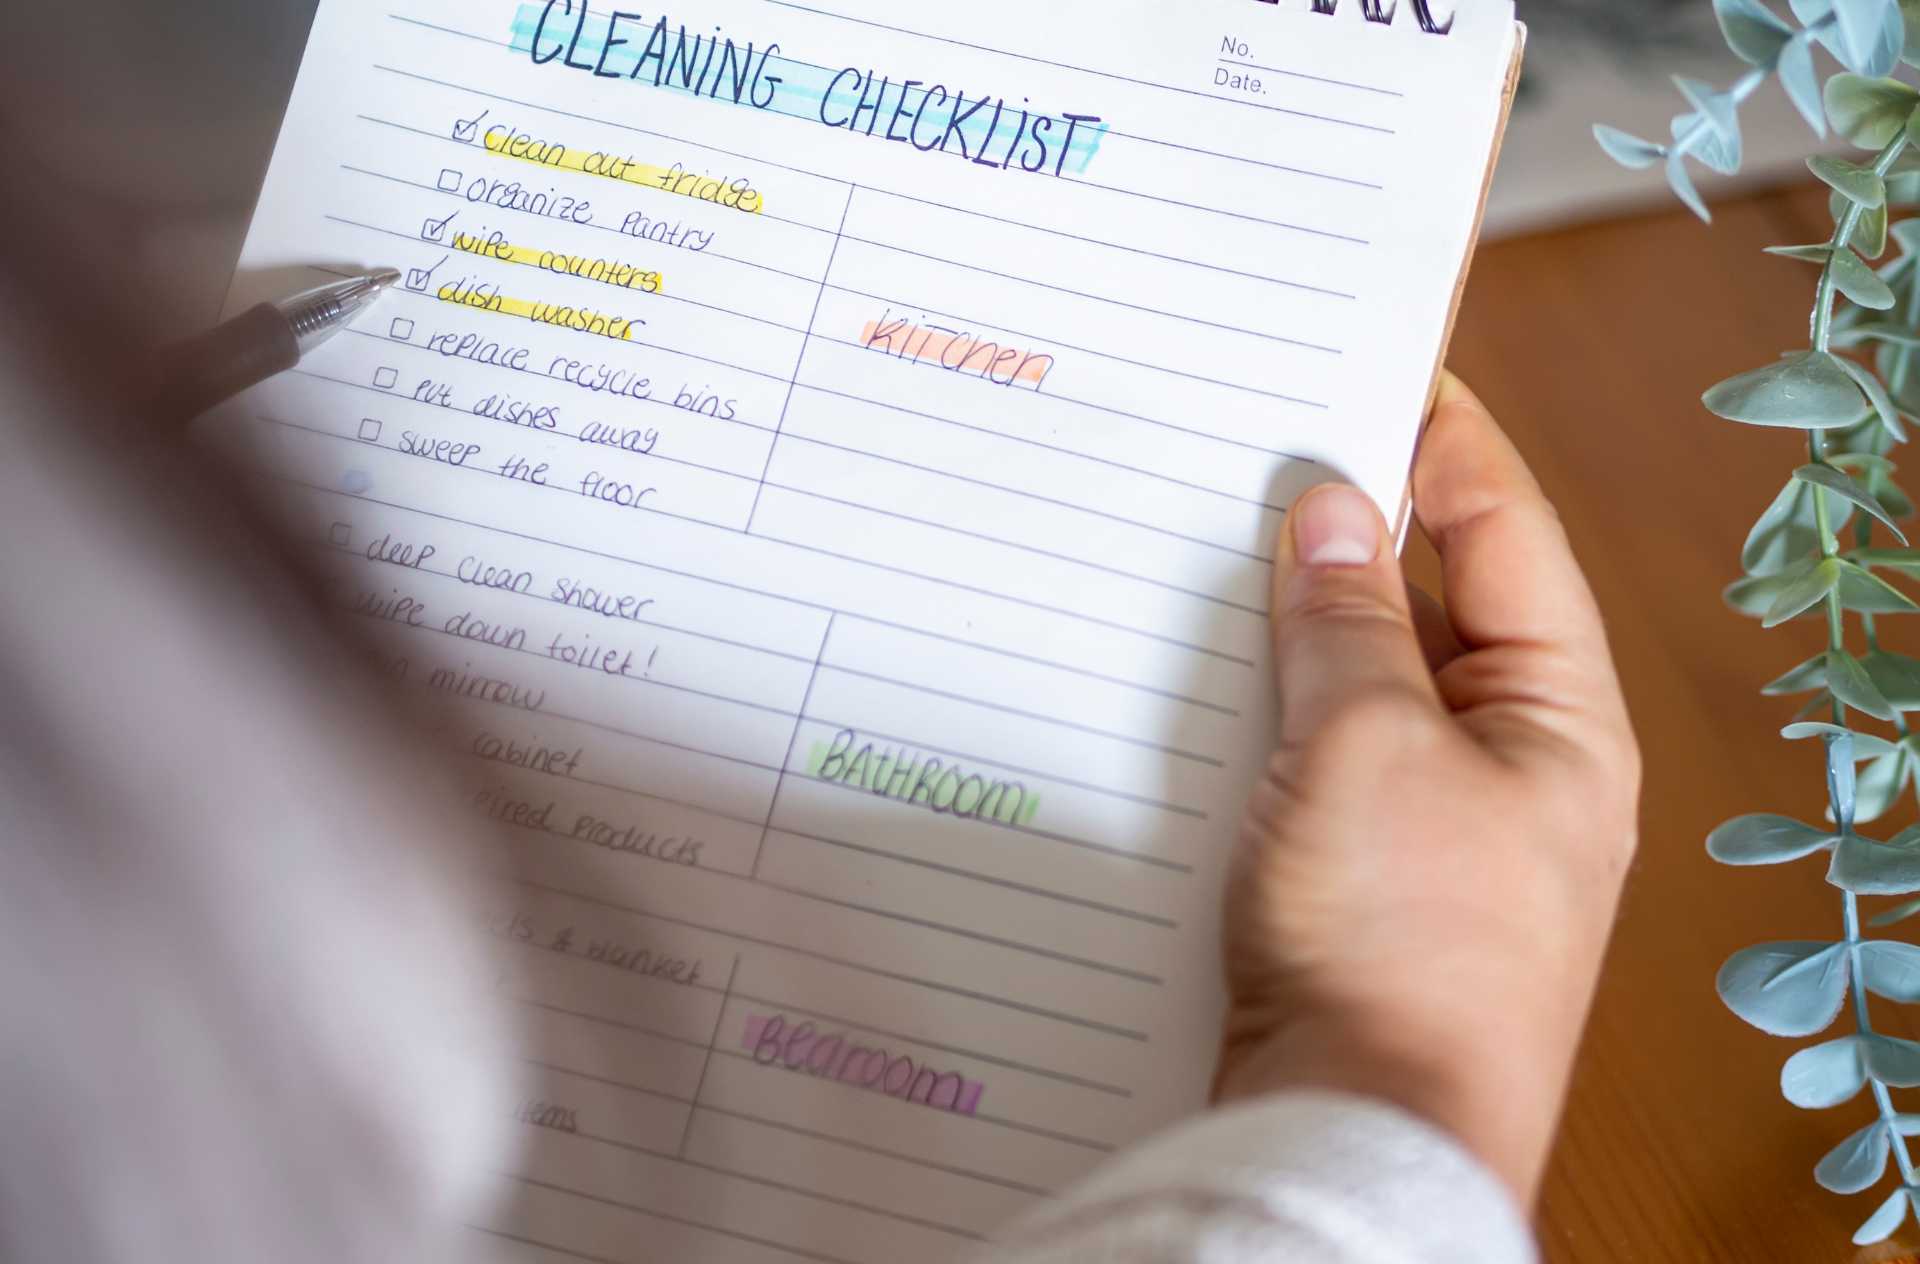 No.
Date.
CLEANING CHECKLIST
Clean out fridge
organize pantry
wipe counters
dish washer
replace recycle bins
put dishes away
sweep the floor
KITCHEN
deep clean shower
wipe down toilet!
mirrow
cabinet
products
BATHROOM
& blanket
items
Bedroom